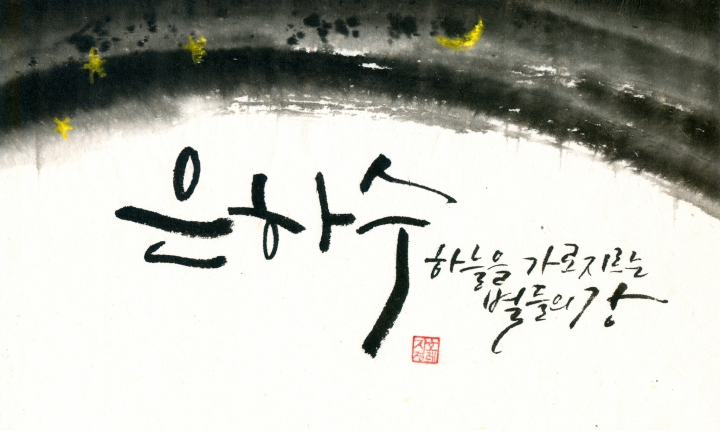 은하수
하늘을 가로지르는
별들의 강